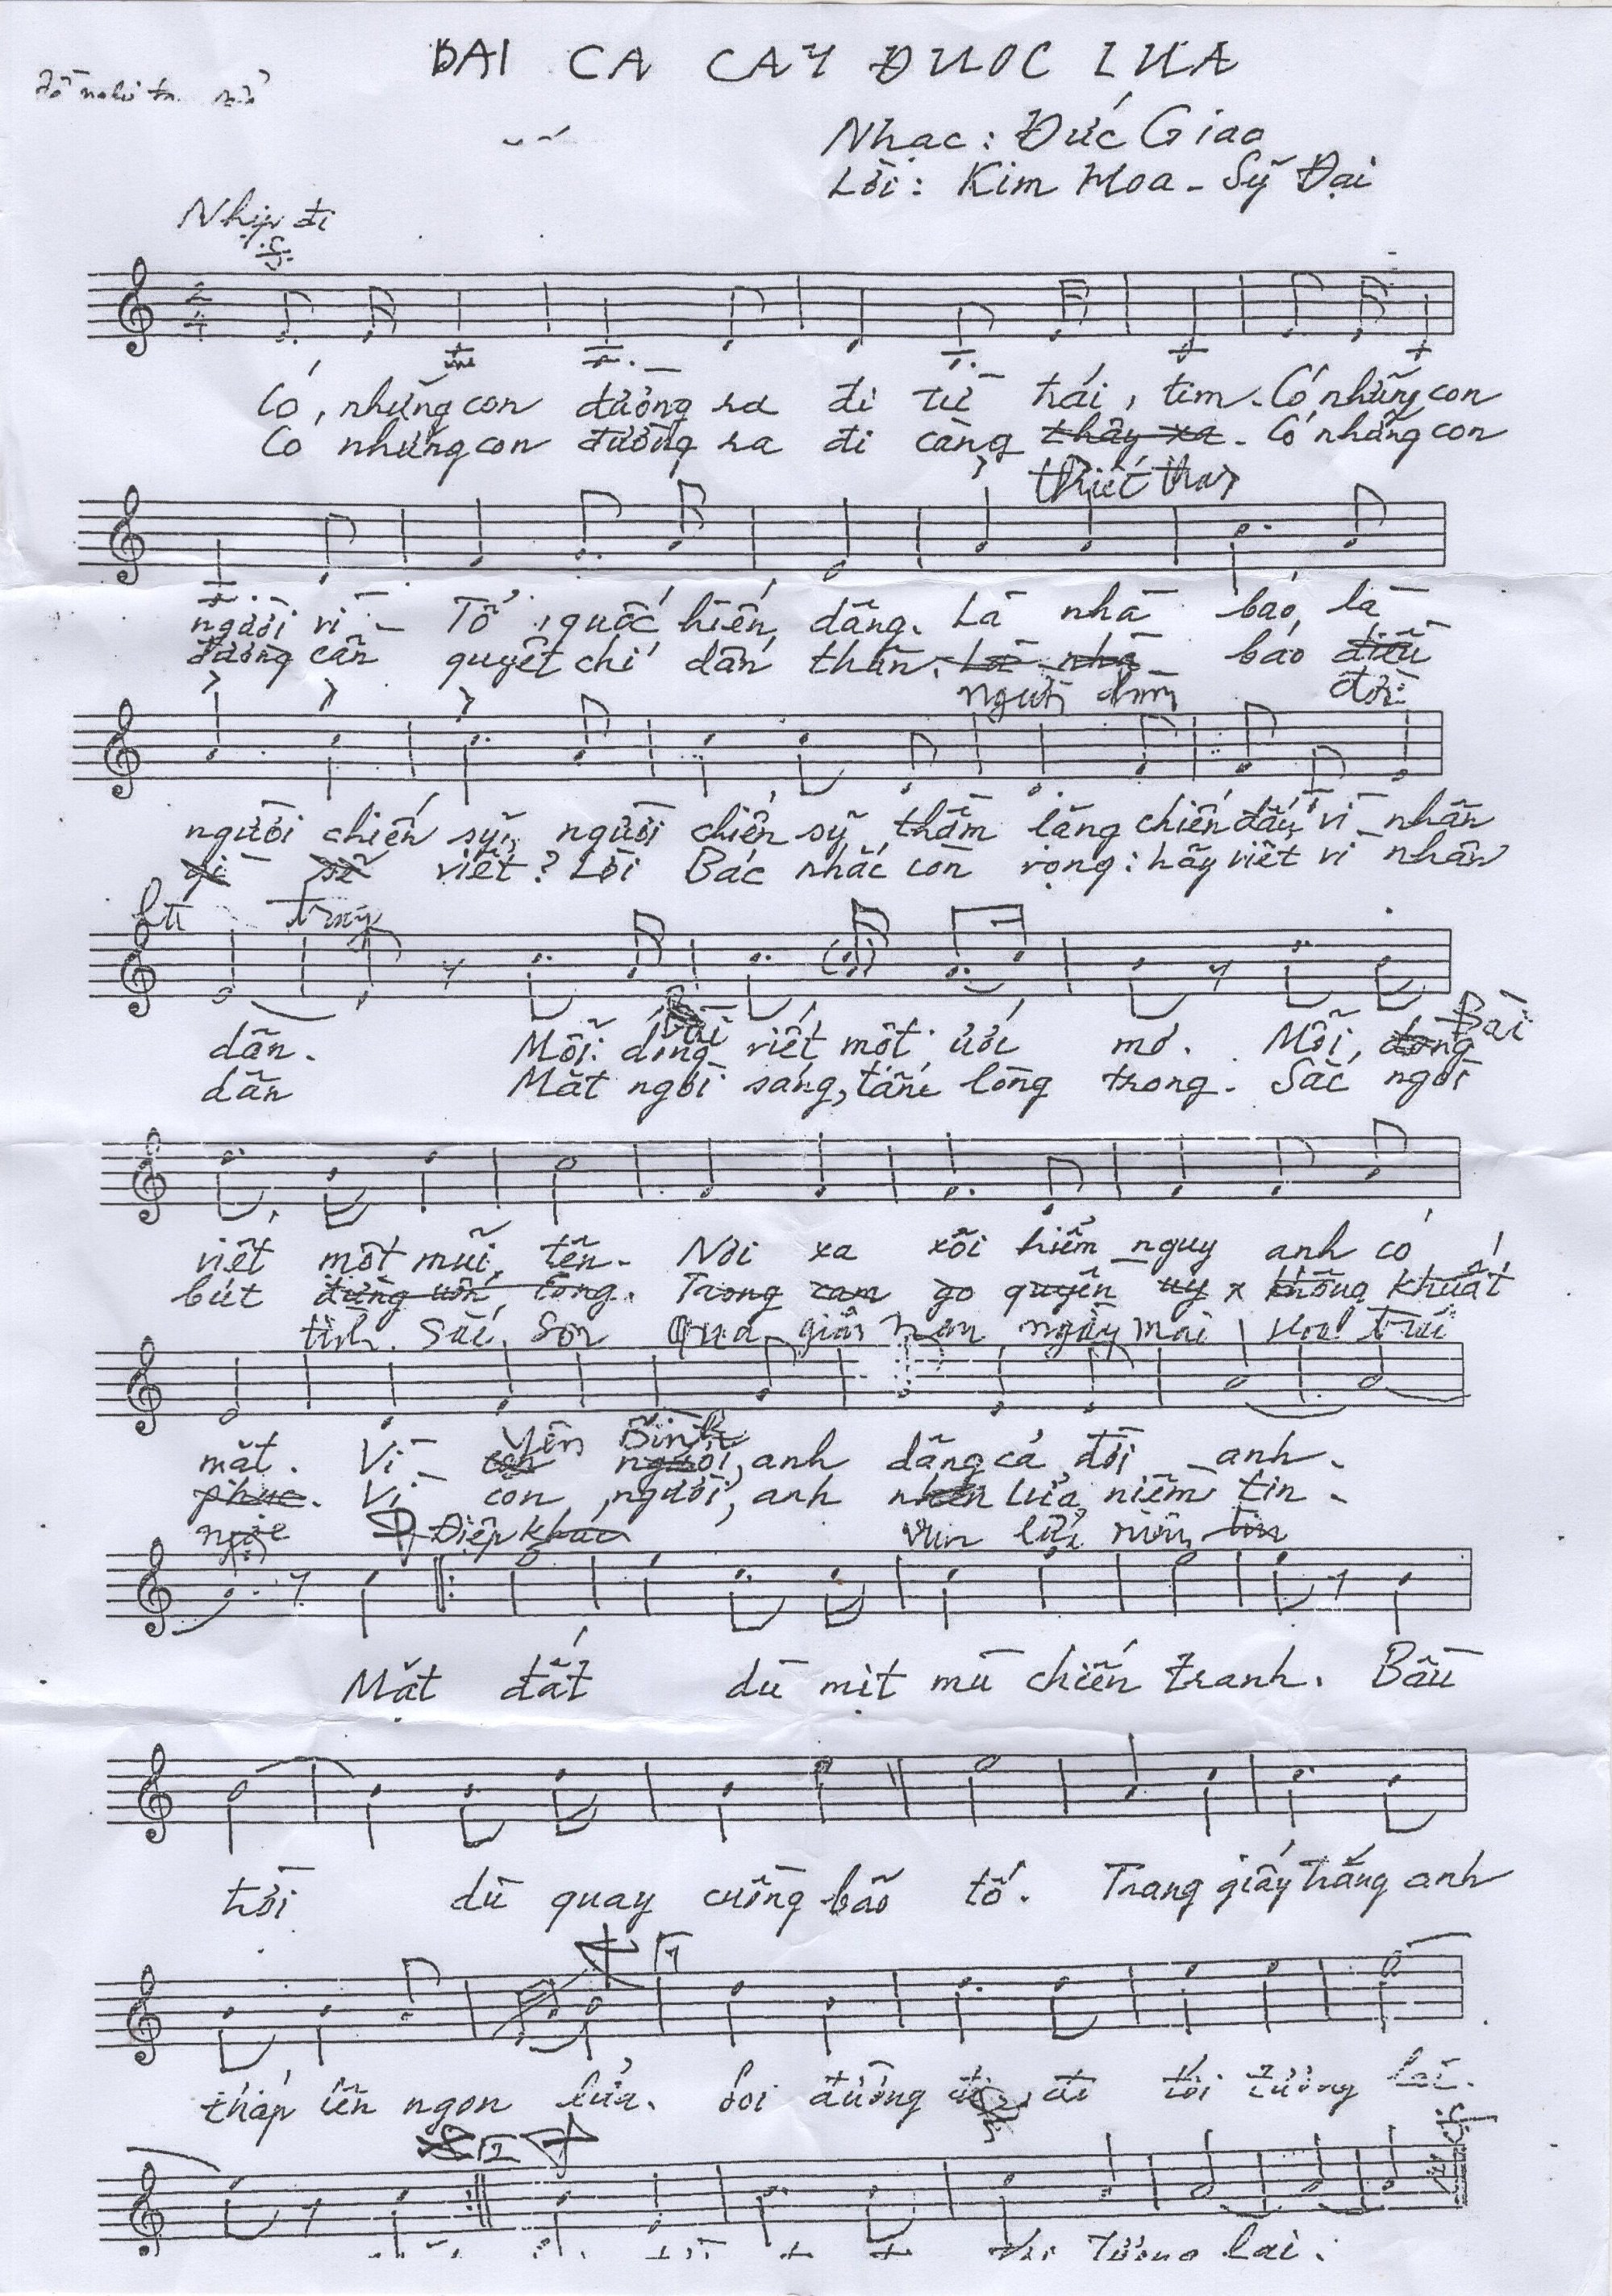 BAI CA CAY ĐUOC LUA
Nhạc: Đức Giao
Lời: Kim Hoa - Sỹ Đại
Nhịp đi
2
4
Có, những con đường ra đi từ trái, tim. Có những con
Có những con đường ra đi càng thấy xa. Có những con
thiết tha
người vì Tổ quốc hiến dâng. Là nhà báo, là
đường cần quyết chí dấn thân. Là nhà báo điều
người đời
người chiến sỹ, người chiến sỹ thầm lặng chiến đấu vì nhân
gì sẽ viết? Lời Bác nhắc còn vọng: hãy viết vì nhân
dân. Mỗi dòng viết một ước mơ. Mỗi, dòng Bài
dân Mắt ngời sáng, tấm lòng trong. Sắc ngòi
viết một mũi, tên. Nơi xa xôi hiểm nguy anh có
bút đừng uốn, cong. Trong cam go quyền uy x không khuất
tình. Sắc, Son Qua gian nan ngày mai hoa trái
Yên Bình
mặt. Vì con người, anh dâng cả đời anh.
phục. Vì con người, anh nhen lửa niềm tin.
Điệp khúc lửa niềm tin
Mặt đất dù mịt mù chiến tranh. Bầu
trời dù quay cuồng bão tố. Trang giấy trắng anh
1
thắp lên ngọn lửa. Soi đường đi, đi tới tương lai.
2
tương lai.